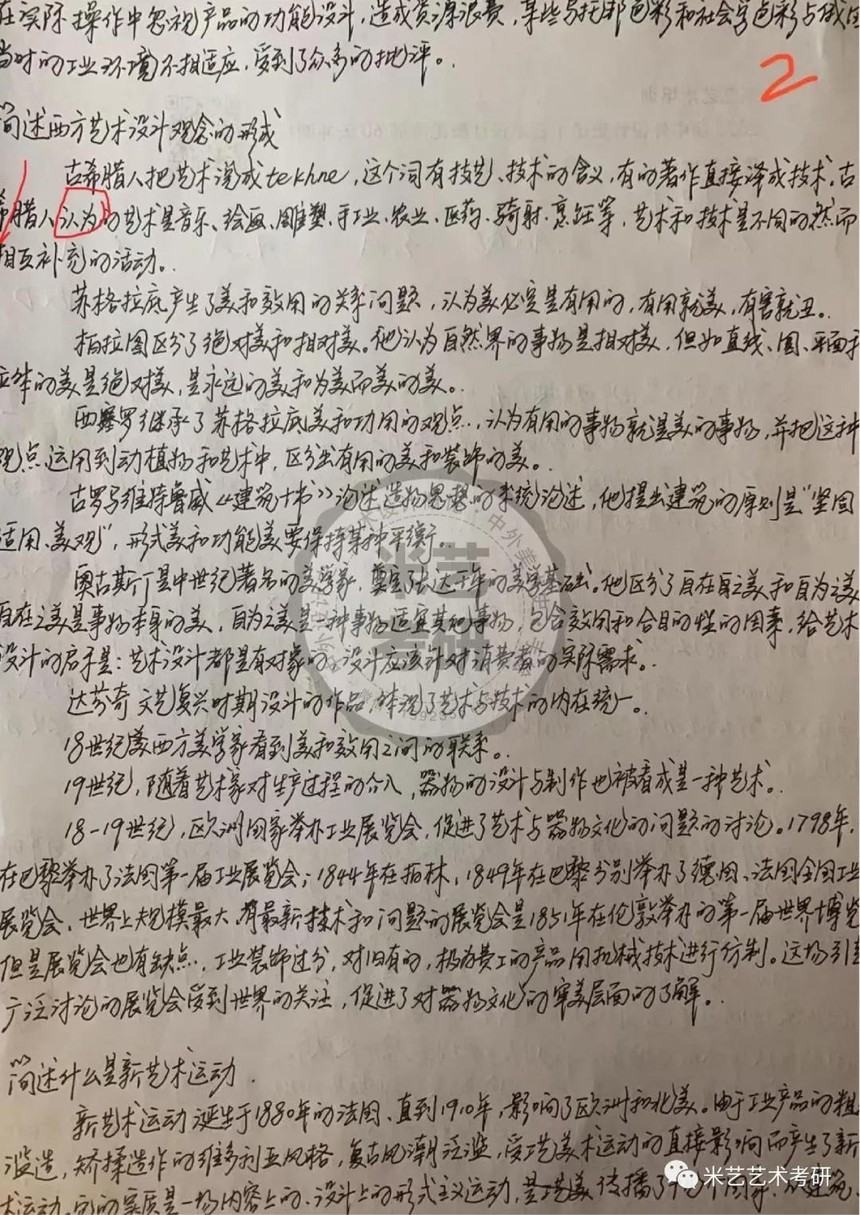 在实际操作中忽视产品的功能设计,造成资源浪费,某些乌托邦色彩和社会学色彩与
当时的工业环境不相适应,受到了众多的批评。
2
简述西方艺术设计观念的形成
古希腊人把艺术说成tekhne,这个词有技艺、技术的含义,有的著作直接译成技术。古
希腊人认为的艺术是音乐、绘画、雕塑、手工业、农业、医药、骑射、烹饪等,艺术和技术是不同的然而
相互补充的活动。
苏格拉底产生了美和效用的关系问题,认为美必定是有用的,有用就美,有害就丑。
柏拉图区分了绝对美和相对美。他认为自然界的事物是相对美,但如直线、圆、平面和
立体的美是绝对美,是永远的美和为美而美的美。
西塞罗继承了苏格拉底美和功用的观点,认为有用的事物就是美的事物,并把这种
观点运用到动植物和艺术中,区分出有用的美和装饰的美。
古罗马维特鲁威《建筑十书》论述造物思想的系统论述,他提出建筑的原则是“坚固
适用、美观”,形式美和功能美要保持某种平衡。
奥古斯丁是中世纪著名的美学家,奠定长达千年的美学基础。他区分了自在之美和自为之美
自在之美是事物本身的美,自为之美是一种事物适宜其他事物,包含效用和合目的性的因素,给艺术
设计的启示是:艺术设计都是有对象的,设计应该针对消费者的实际需求。
达芬奇文艺复兴时期设计的作品,体现了艺术与技术的内在统一。
18世纪英西方美学家看到美和效用之间的联系。
19世纪,随着艺术家对生产过程的介入,器物的设计与制作也被看成是一种艺术。
18-19世纪,欧洲国家举办工业展览会,促进了艺术与器物文化的问题的讨论。1798年,
在巴黎举办了法国第一届工业展览会;1844年在柏林,1849年在巴黎分别举办了德国、法国全国工业
展览会,世界上规模最大、有最新技术和问题的展览会是1851年在伦敦举办的第一届世界博览
但是展览会也有缺点,工业装饰过分,对旧有的,极为费工的产品用机械技术进行仿制。这场引
广泛讨论的展览会受到世界的关注,促进了对器物文化的审美层面的了解。
简述什么是新艺术运动
新艺术运动诞生于1880年的法国、直到1910年,影响了欧洲和北美。由于工业产品的粗
滥造,矫揉造作的维多利亚风格,复古风潮泛滥,受工艺美术运动的直接影响而产生了新
术运动。它的实质是一场内容上的、设计上的形式主义运动,
米艺艺术考研